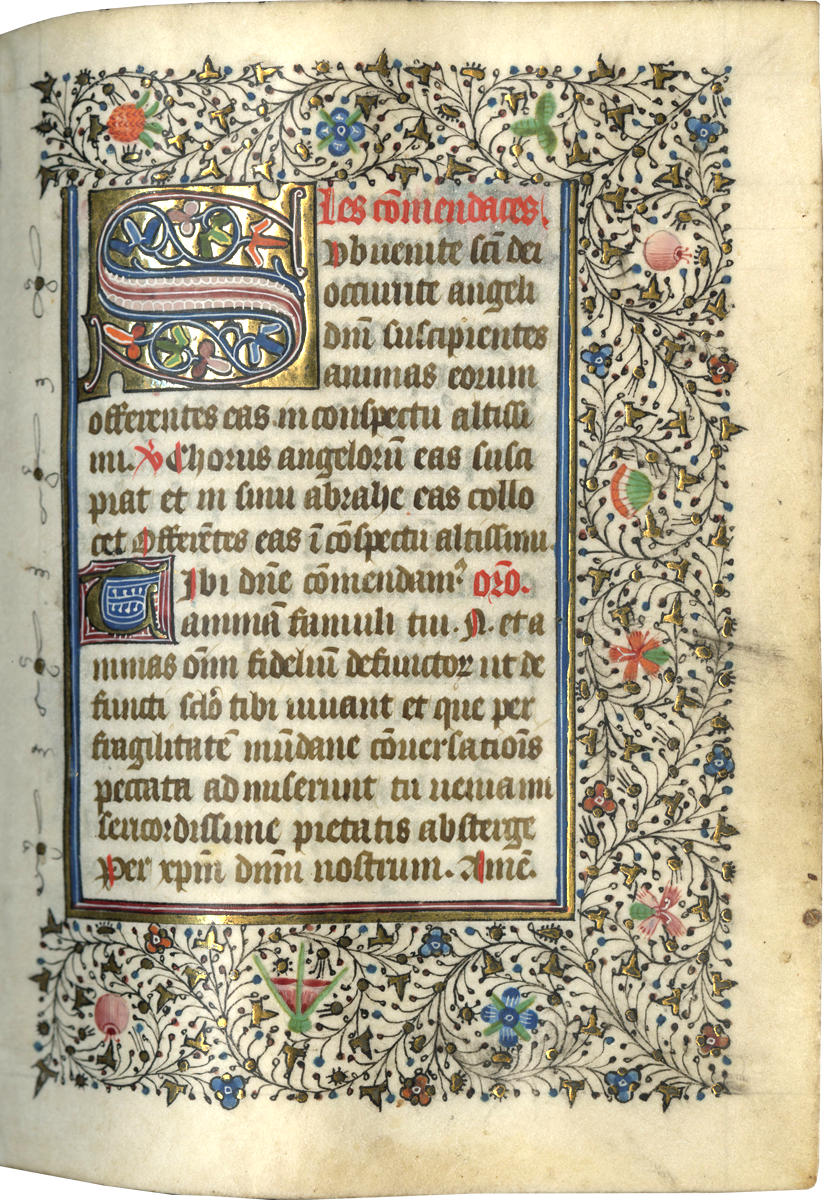 Les cōmendaces.
Subuenite scī dei
occurrite angeli
dn̄i suscipientes
animas eorum
offerentes eas in conspectu altissi
mi. V̸ Chorus angelorū eas susci
piat et in sinu abrahe eas collo
cet Offerētes eas ī cōspectu altissimi.
Tibi dn̄e cōmendamꝰ orō.
animā famuli tui. N. et a
nimas om̄i fideliū defunctoꝝ ut de
functi sclō tibi uiuant et que per
fragilitatē mūdane cōuersatiōis
peccata admiserunt tu uenia mi
sericordissime pietatis absterge
Per xp̄m dn̄m nostrum. Amē.